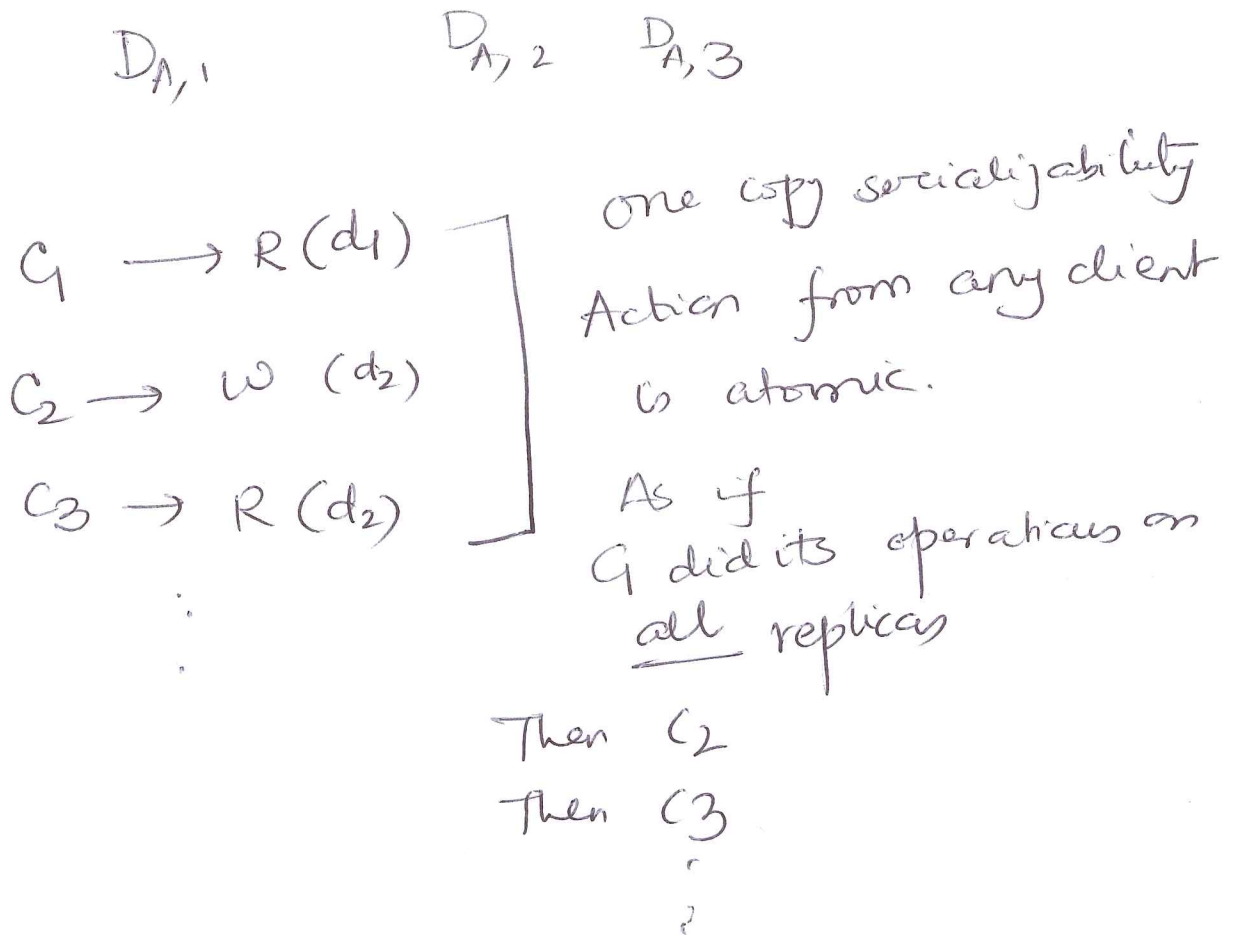 D_A,1 D_A,2 D_A,3
C1 → R (d1)
C2 → W (d2)
C3 → R (d2)
one copy serializability
Action from any client
is atomic.
As if
C1 did its operations on
all replicas
Then C2
Then C3